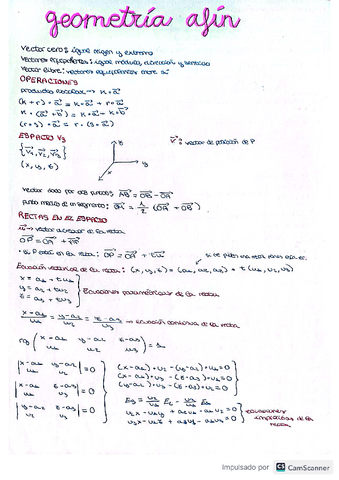 geometría afín
Vector cero: igual origen y extremo
Vectores equipolentes: igual módulo, dirección y sentido
Vector libre: vectores equipolentes entre sí
OPERACIONES
producto escalar → k·a⃗
(k+r)·a⃗ = k·a⃗ + r·a⃗
k·(a⃗+b⃗) = k·a⃗ + k·b⃗
(r·s)·a⃗ = r·(s·a⃗)
ESPACIO V3
{v⃗1, v⃗2, v⃗3}
vector de posición de P
(x, y, z)
z
y
x
Vector dado por dos puntos: AB = OB - OA
punto medio de un segmento: = 1/2 (OA + OB)
RECTAS EN EL ESPACIO
u⃗ → vector director de la recta
si P está en la recta: OP = OA + tu⃗
Ecuación vectorial de la recta: (x, y, z) = (a1, a2, a3) + t(u1, u2, u3)
x = a1 + tu1
y = a2 + tu2
z = a3 + tu3
Ecuaciones paramétricas de la recta
(x-a1)/u1 = (y-a2)/u2 = (z-a3)/u3 → ecuación continua de la recta
rg (x-a1 y-a2 z-a3 / u1 u2 u3) = 1
|x-a1 y-a2 / u1 u2| = 0
|x-a1 z-a3 / u1 u3| = 0
|y-a2 z-a3 / u2 u3| = 0
(x-a1)·u2 - (y-a2)·u1 = 0
(x-a1)·u3 - (z-a3)·u1 = 0
(y-a2)·u3 - (z-a3)·u2 = 0
ecuaciones
implícitas de la
recta
Impulsado por CamScanner